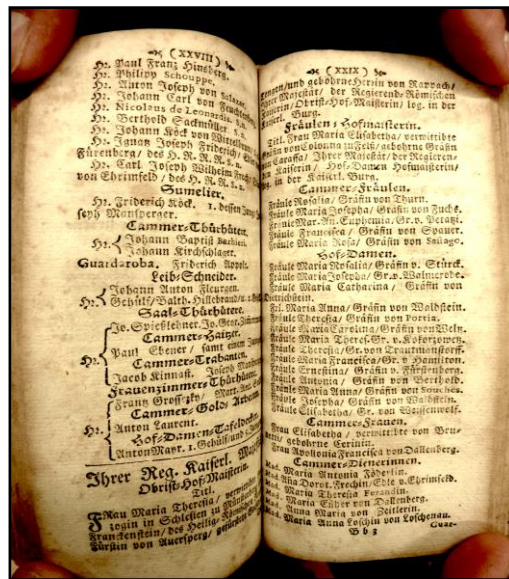 ( XXVIII )
Hr. Paul Franz Hinsberg.
Hr. Philipp Schouppe.
Hr. Anton Joseph von Salazar.
Hr. Johann Carl von
Hr. Nicolaus de Leonardis. S.A.
Hr. Berthold Sackmüller. S.A.
Hr. Johann Köck von
Hr. Ignatz Joseph Friderich
Fürenberg/ des H. R. R. R. S.A.
Hr. Carl Joseph Wilhelm
von Ehrimfeld/ des H. R. R. S. A.
Sumelier.
Hr. Friderich Köck. 1. dessen
seph Mansperger.
Cammer-Thürhüter.
Hr. Johann Baptist
Johann Kirchschlager.
Guardaroba. Friderich
Leib-Schneider.
Hr. Johann Anton Fleurgen.
Gehülf/ Balth. Hillebrand/
Saal-Thürhütere.
Jo. Spießlehner. Jo. Georg
Cammer-Haitzer.
Hr. Paul Ebener/ samt einem
Cammer-Trabanten.
Jacob Kinnast. Joseph
Frauenzimmer-Thürhüter.
Frantz Matt.
Cammer-Gold-
Hr. Anton Laurent.
Hof-Damen-Tafeldecker.
Anton Mayr. 1. Gehülf/ und
Ihrer Reg. Kaiserl. Majestät
Obrist-Hof-Maisterin.
Titl.
Frau Maria Theresia/ verwittibte
zogin in Schlesien zu
Franckenstein/ des Heilig-
Fürstin von Auersperg/
( XXIX )
und gebohrne Herrin von Rappach/
Ihrer Majestät/ der Regierend-Römischen
Kaiserin/ Obrist-Hof-Maisterin/ log. in der
Kaiserl. Burg.
Fräulen-Hofmaisterin.
Titl. Frau Maria Elisabetha/ verwittibte
Gräfin von Colonna zu Felß/ gebohrne Gräfin
von Caraffa/ Ihrer Majestät/ der Regieren-
den Kaiserin/ Hof-Damen Hofmaisterin/
log. in der Kaiserl. Burg.
Cammer-Fräulen.
Fräule Rosalia/ Gräfin von Thurn.
Fräule Maria Josepha/ Gräfin von Fuchs.
Fräule Mar. An. Euphemia/ Gr. v.
Fräule Francisca/ Gräfin von Spauer.
Fräule Maria Rosa/ Gräfin von Sallago.
Hof-Damen.
Fräule Maria Rosalia/ Gräfin v. Stürck.
Fräule Maria Josepha/ Gr. v. Walmerode.
Fräule Maria Catharina/ Gräfin von
Dietrichstein.
Frl. Maria Anna/ Gräfin von Waldstein.
Fräule Theresia/ Gräfin von Portia.
Fräule Maria Carolina/ Gräfin von Weltz.
Fräule Maria Theres. Gr. v. Kokorzowetz.
Fräule Theresia/ Gr. von Trautmanstorff.
Fräule Maria Francisca/ Gr. v. Hamilton.
Fräule Ernestina/ Gräfin v. Fürstenberg.
Fräule Antonia/ Gräfin von Berthold.
Fräule Maria Anna/ Gräfin von Souches.
Fräule Josepha/ Gräfin von Waldstein.
Fräule Elisabetha/ Gr. von Weissenwolf.
Cammer-Frauen.
Frau Elisabetha/ verwittibte von
gebohrne Cerinin.
Frau Apollonia Francisca von Dallenberg.
Cammer-Dienerinnen.
Mad. Maria Antonia
Mad. Ana Dorot. Frechin/ Edle v. Ehrimfeld.
Mad. Maria Theresia
Mad. Maria Eucher von Dallenberg.
Mad. Anna Maria von Zeitlerin.
Mad. Maria Anna Loschin von Loschenau.
B b 3